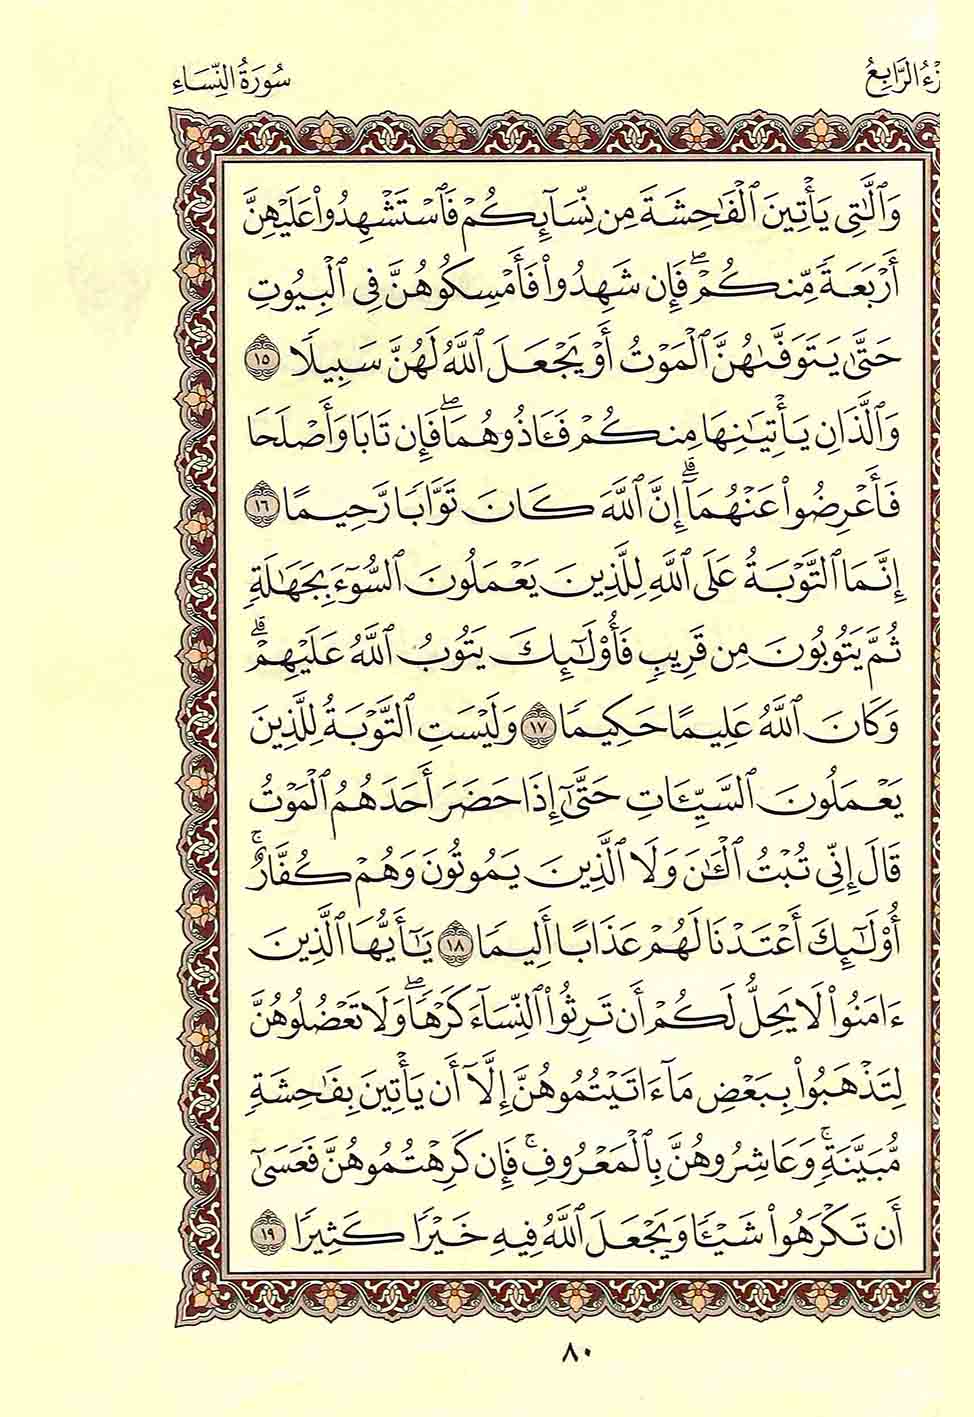 سُورَةُ النِّسَاءِ
زْءُ الرَّابِعُ
وَٱلَّٰتِى يَأْتِينَ ٱلْفَٰحِشَةَ مِن نِّسَآئِكُمْ فَٱسْتَشْهِدُوا۟ عَلَيْهِنَّ
أَرْبَعَةً مِّنكُمْ ۖ فَإِن شَهِدُوا۟ فَأَمْسِكُوهُنَّ فِى ٱلْبُيُوتِ
حَتَّىٰ يَتَوَفَّىٰهُنَّ ٱلْمَوْتُ أَوْ يَجْعَلَ ٱللَّهُ لَهُنَّ سَبِيلًا ١٥
وَٱلَّذَانِ يَأْتِيَٰنِهَا مِنكُمْ فَـَٔاذُوهُمَا ۖ فَإِن تَابَا وَأَصْلَحَا
فَأَعْرِضُوا۟ عَنْهُمَآ ۗ إِنَّ ٱللَّهَ كَانَ تَوَّابًا رَّحِيمًا ١٦
إِنَّمَا ٱلتَّوْبَةُ عَلَى ٱللَّهِ لِلَّذِينَ يَعْمَلُونَ ٱلسُّوٓءَ بِجَهَٰلَةٍ
ثُمَّ يَتُوبُونَ مِن قَرِيبٍ فَأُو۟لَٰٓئِكَ يَتُوبُ ٱللَّهُ عَلَيْهِمْ ۗ
وَكَانَ ٱللَّهُ عَلِيمًا حَكِيمًا ١٧ وَلَيْسَتِ ٱلتَّوْبَةُ لِلَّذِينَ
يَعْمَلُونَ ٱلسَّيِّـَٔاتِ حَتَّىٰٓ إِذَا حَضَرَ أَحَدَهُمُ ٱلْمَوْتُ
قَالَ إِنِّى تُبْتُ ٱلْـَٰٔنَ وَلَا ٱلَّذِينَ يَمُوتُونَ وَهُمْ كُفَّارٌ ۚ
أُو۟لَٰٓئِكَ أَعْتَدْنَا لَهُمْ عَذَابًا أَلِيمًا ١٨ يَٰٓأَيُّهَا ٱلَّذِينَ
ءَامَنُوا۟ لَا يَحِلُّ لَكُمْ أَن تَرِثُوا۟ ٱلنِّسَآءَ كَرْهًا ۖ وَلَا تَعْضُلُوهُنَّ
لِتَذْهَبُوا۟ بِبَعْضِ مَآ ءَاتَيْتُمُوهُنَّ إِلَّآ أَن يَأْتِينَ بِفَٰحِشَةٍ
مُّبَيِّنَةٍ ۚ وَعَاشِرُوهُنَّ بِٱلْمَعْرُوفِ ۚ فَإِن كَرِهْتُمُوهُنَّ فَعَسَىٰٓ
أَن تَكْرَهُوا۟ شَيْـًٔا وَيَجْعَلَ ٱللَّهُ فِيهِ خَيْرًا كَثِيرًا ١٩
٨٠